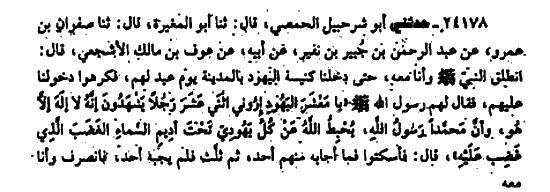 ٢٤١٧٨ - حدثني أبو شرحبيل الحمصي، قال: ثنا أبو المغيرة، قال: ثنا صفوان بن
عمرو، عن عبد الرحمن بن جُبير بن نفير، عن أبيه، عن عوف بن مالك الأشجعي، قال:
انطلق النبيّ ﷺ وأنا معه، حتى دخلنا كنيسة اليهود بالمدينة يوم عيد لهم، فكرهوا دخولنا
عليهم، فقال لهم رسول الله ﷺ «يا مَعْشَرَ اليَهُودِ أرُونِي اثْنَيْ عَشَرَ رَجُلاً يَشْهَدُونَ إنَّهُ لا إلَهَ إلاَّ
هُوَ، وأنَّ مُحَمَّداً رَسُولُ اللَّهِ، يُحْبِطُ اللَّهُ عَنْ كُلّ يَهُودِيّ تَحْتَ أدِيمِ السَّماءِ الغَضَبَ الَّذِي
غَضِبَ عَلَيْهِ»، قال: فأسكتوا فما أجابه منهم أحد، ثم ثلَّث فلم يجبه أحد، فانصرف وأنا
معه